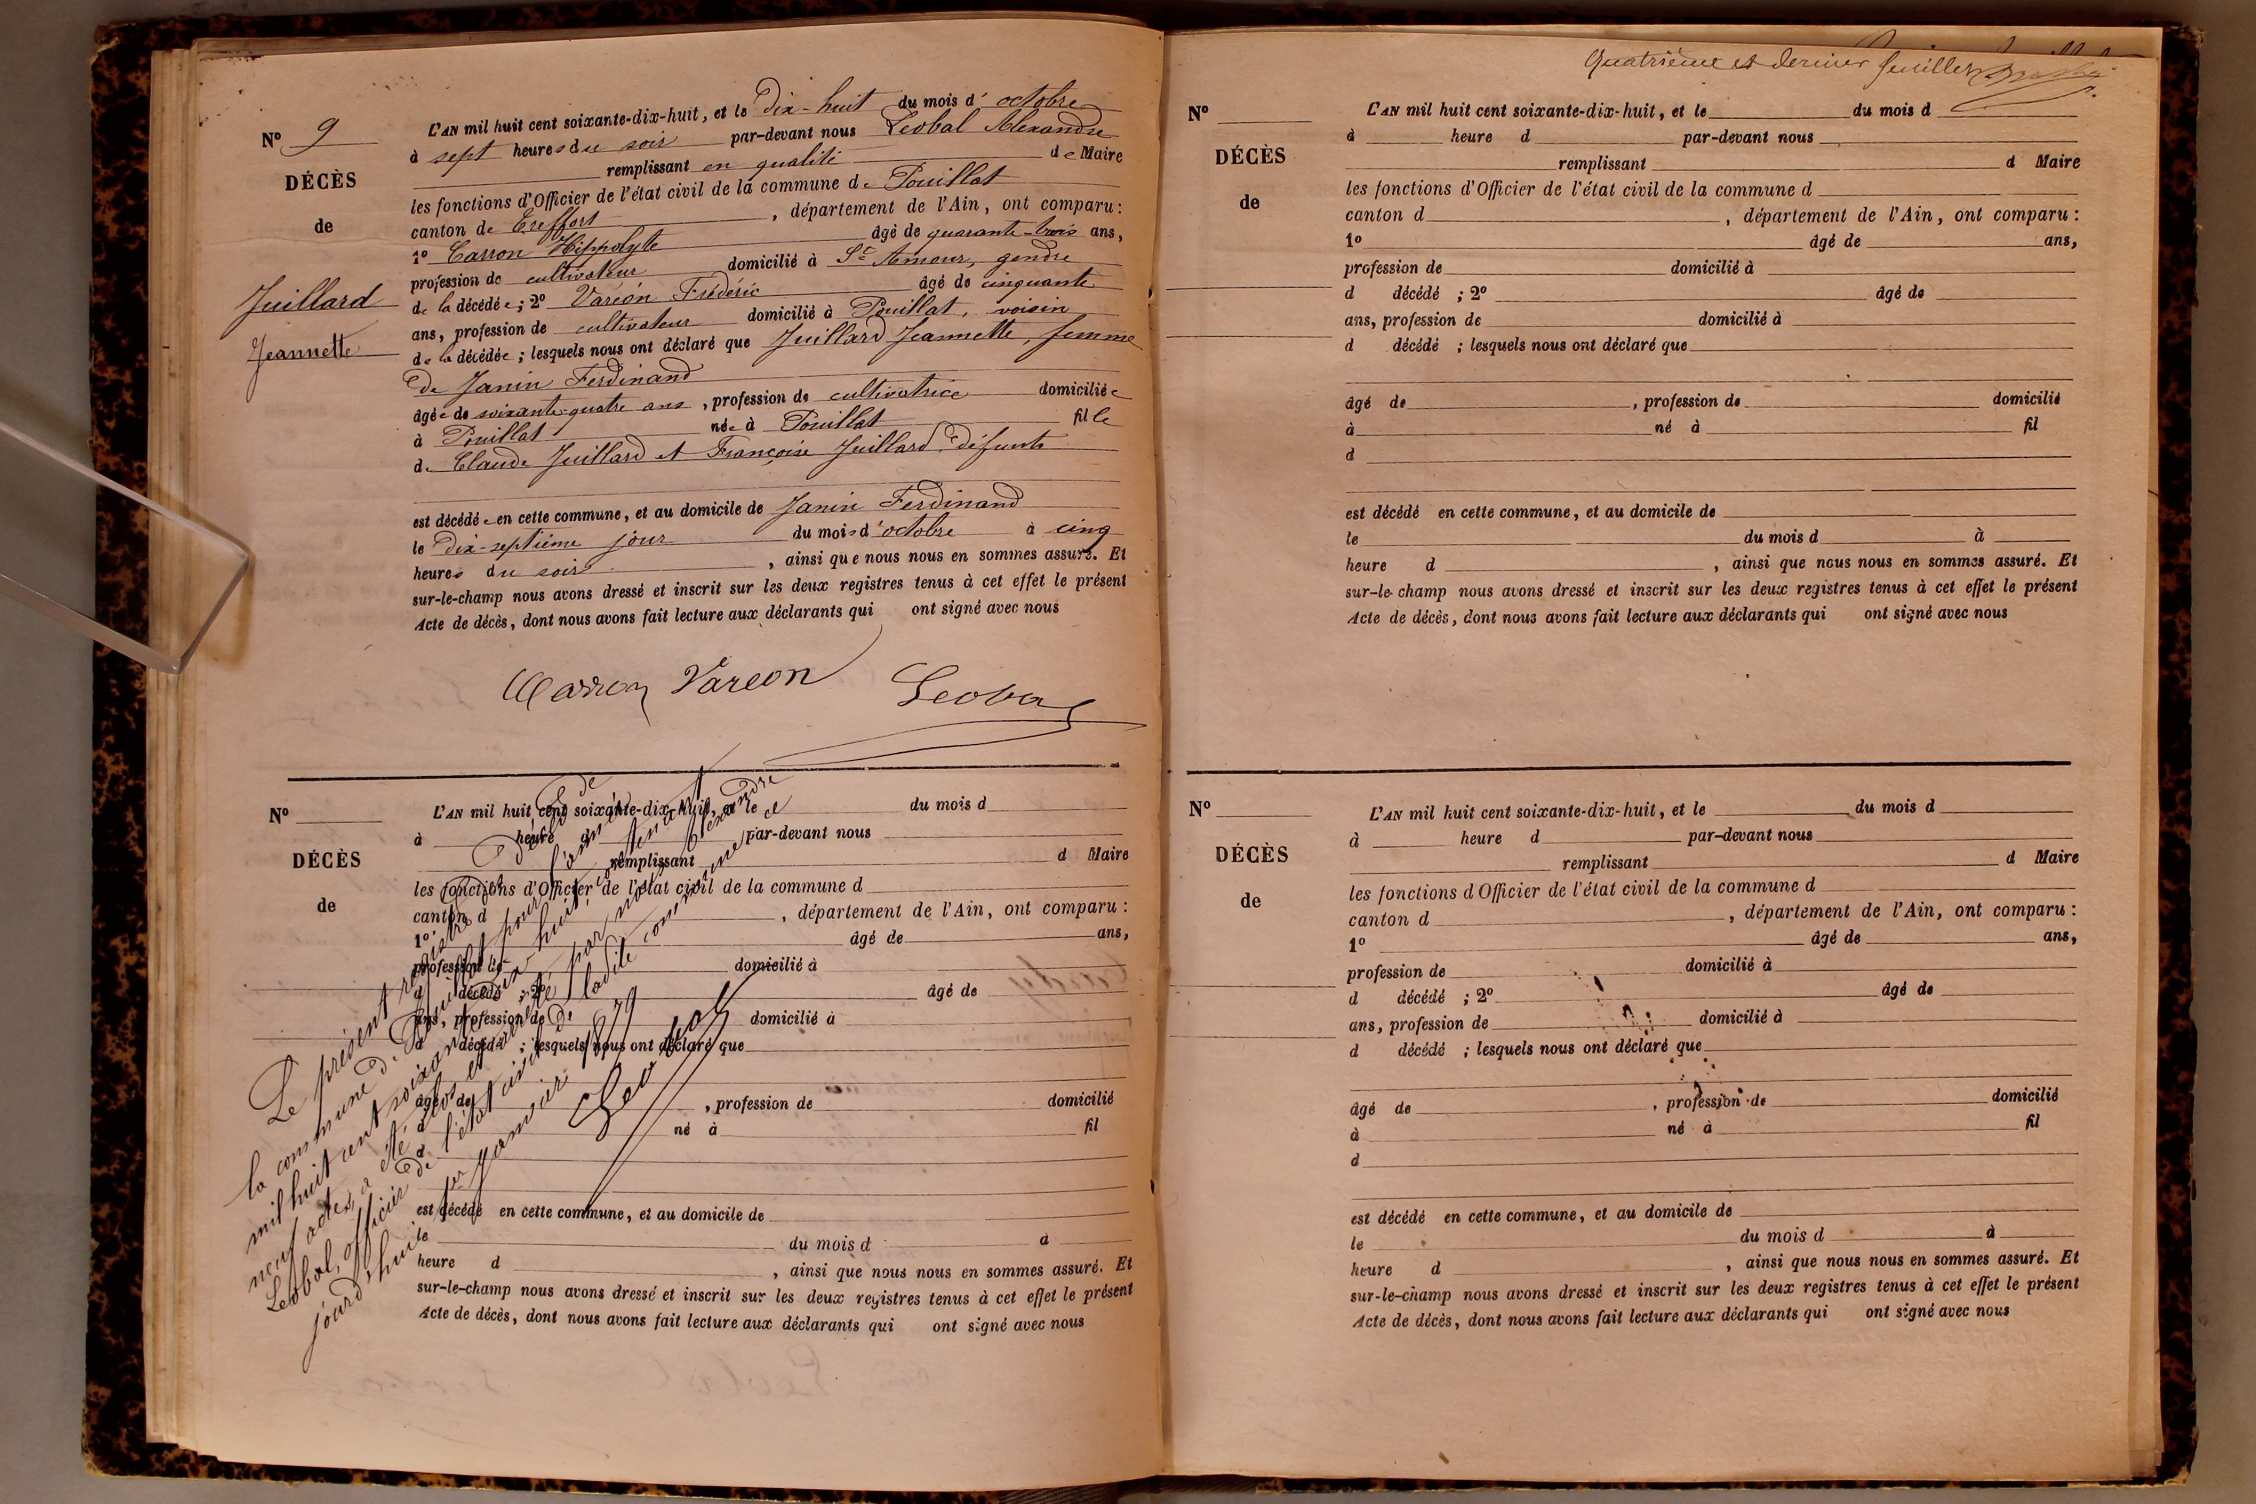 N° 9
DÉCÈS
de
Juillard
Jeannette
L'AN mil huit cent soixante-dix-huit, et le Dix-huit du mois d' octobre
à sept heures du soir par-devant nous Léobal Alexandre
remplissant en qualité de Maire
les fonctions d'Officier de l'état civil de la commune de Pouillat
canton de Treffort, département de l'Ain, ont comparu :
1° Carron Hippolyte âgé de quarante-trois ans,
profession de cultivateur domicilié à St Amour, gendre
de la décédée ; 2° Varéon Frédéric âgé de cinquante
ans, profession de cultivateur domicilié à Pouillat, voisin
de la décédée ; lesquels nous ont déclaré que Juillard Jeannette, femme
de Janin Ferdinand
âgée de soixante-quatre ans, profession de cultivatrice domiciliée
à Pouillat née à Pouillat fille
de Claude Juillard et Françoise Juillard défunts
est décédée en cette commune, et au domicile de Janin Ferdinand
le Dix-septième jour du mois d'octobre à cinq
heures du soir, ainsi que nous nous en sommes assuré. Et
sur-le-champ nous avons dressé et inscrit sur les deux registres tenus à cet effet le présent
Acte de décès, dont nous avons fait lecture aux déclarants qui ont signé avec nous
Carron Vareon Leobal
N°
DÉCÈS
de
L'AN mil huit cent soixante-dix-huit, et le du mois d
à heure d par-devant nous
remplissant d Maire
les fonctions d'Officier de l'état civil de la commune d
canton d , département de l'Ain, ont comparu :
1° âgé de ans,
profession de domicilié à
d décédé ; 2° âgé de
ans, profession de domicilié à
d décédé ; lesquels nous ont déclaré que
âgé de , profession de domicilié
à né à fil
d
est décédé en cette commune, et au domicile de
le du mois d à
heure d , ainsi que nous nous en sommes assuré. Et
sur-le-champ nous avons dressé et inscrit sur les deux registres tenus à cet effet le présent
Acte de décès, dont nous avons fait lecture aux déclarants qui ont signé avec nous
Le présent registre des Décès de
la commune de Pouillat pour l'année
mil huit cent soixante-dix-huit, contenant
neuf actes, a été clos et arrêté par nous Alexandre
Léobal, officier de l'état civil de ladite commune ce
jourd'hui 1er janvier 1879
Leobal
Quatrième et dernier feuillet
N°
DÉCÈS
de
L'AN mil huit cent soixante-dix-huit, et le du mois d
à heure d par-devant nous
remplissant d Maire
les fonctions d'Officier de l'état civil de la commune d
canton d , département de l'Ain, ont comparu :
1° âgé de ans,
profession de domicilié à
d décédé ; 2° âgé de
ans, profession de domicilié à
d décédé ; lesquels nous ont déclaré que
âgé de , profession de domicilié
à né à fil
d
est décédé en cette commune, et au domicile de
le du mois d à
heure d , ainsi que nous nous en sommes assuré. Et
sur-le-champ nous avons dressé et inscrit sur les deux registres tenus à cet effet le présent
Acte de décès, dont nous avons fait lecture aux déclarants qui ont signé avec nous
N°
DÉCÈS
de
L'AN mil huit cent soixante-dix-huit, et le du mois d
à heure d par-devant nous
remplissant d Maire
les fonctions d'Officier de l'état civil de la commune d
canton d , département de l'Ain, ont comparu :
1° âgé de ans,
profession de domicilié à
d décédé ; 2° âgé de
ans, profession de domicilié à
d décédé ; lesquels nous ont déclaré que
âgé de , profession de domicilié
à né à fil
d
est décédé en cette commune, et au domicile de
le du mois d à
heure d , ainsi que nous nous en sommes assuré. Et
sur-le-champ nous avons dressé et inscrit sur les deux registres tenus à cet effet le présent
Acte de décès, dont nous avons fait lecture aux déclarants qui ont signé avec nous